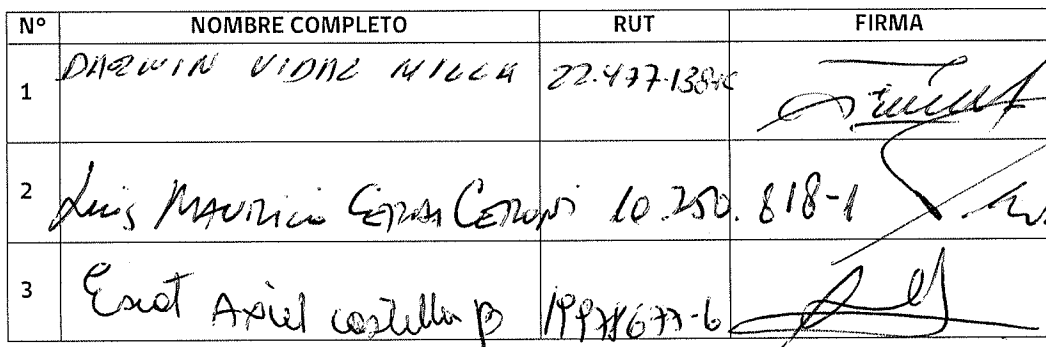 N° NOMBRE COMPLETO RUT FIRMA
1 DARWIN VIDAL MILLA 22.477.138-K
2 Luis MAURICIO CERDA CERONI 10.250.818-1
3 Axiel castilla B 19978677-6